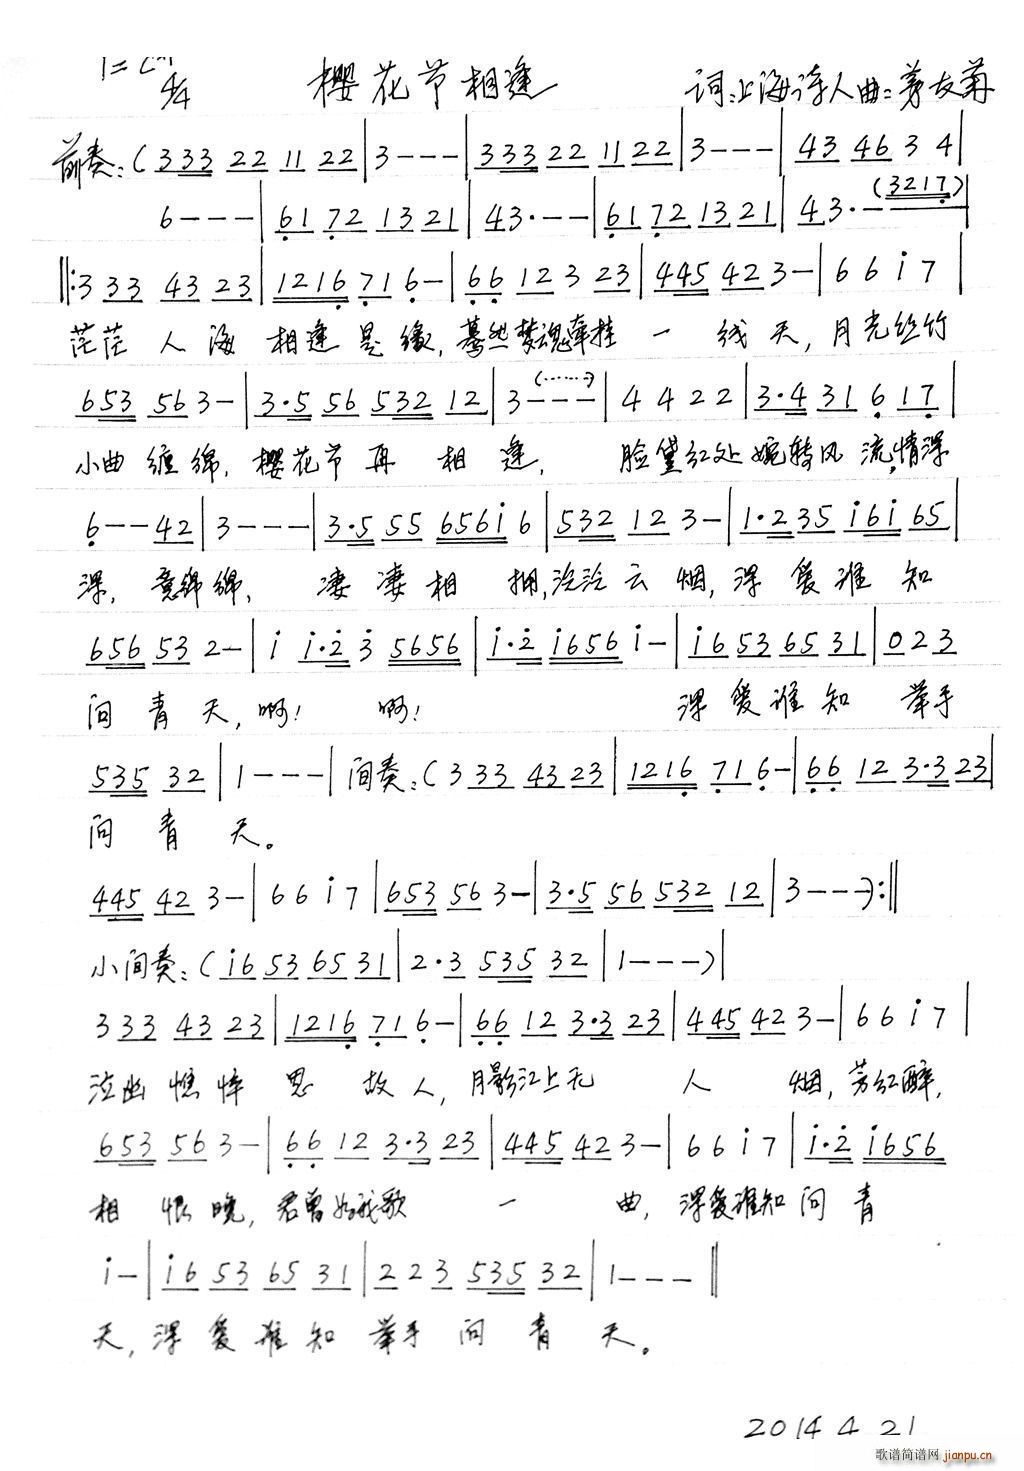 4/4 樱花节相逢 词:上海诗人曲:茅友菊
前奏:(333 22 11 22|3---|333 22 11 22|3---|43 46 3 4|
6---|61 72 13 21|43·--|61 72 13 21|43·-(3217)
‖:3 33 43 23|1216 71 6-|66 12 3 23|445 42 3-|6 6 i 7|
茫茫人海相逢是缘,蓦然梦魂牵挂一线天,月光丝竹
653 56 3-|3·5 56 532 12|3---(······)|4 4 2 2|3·4 31 6 17|
小曲缠绵,樱花节再相逢,脸黛红处婉转风流,情深
6--42|3---|3·5 55 656i 6|532 12 3-|1·2 35 i6i 65|
深,意绵绵,凄凄相拥,泣泣云烟,深爱谁知
656 53 2-|i i·2 3 5656|i·2 i656 i-|i6 53 65 31|023
问青天,啊!啊!深爱谁知举手
535 32|1---|间奏:(3 33 43 23|1216 71 6-|66 12 3·3 23|
问青天。
445 42 3-|6 6 i 7|653 56 3-|3·5 56 532 12|3---):‖
小间奏:(i6 53 65 31|2·3 535 32|1---)|
3 33 43 23|1216 71 6-|66 12 3·3 23|445 42 3-|6 6 i 7|
泣幽憔悴思故人,月影江上无人烟,芳红醉,
653 56 3-|66 12 3·3 23|445 42 3-|6 6 i 7|i·2 i656
相恨晚,君曾 我歌一曲,深爱谁知问青
i-|i6 53 65 31|2 2 3 535 32|1---‖
天,深爱谁知举手问青天。
2014 4 21
歌谱简谱网
jianpu.cn